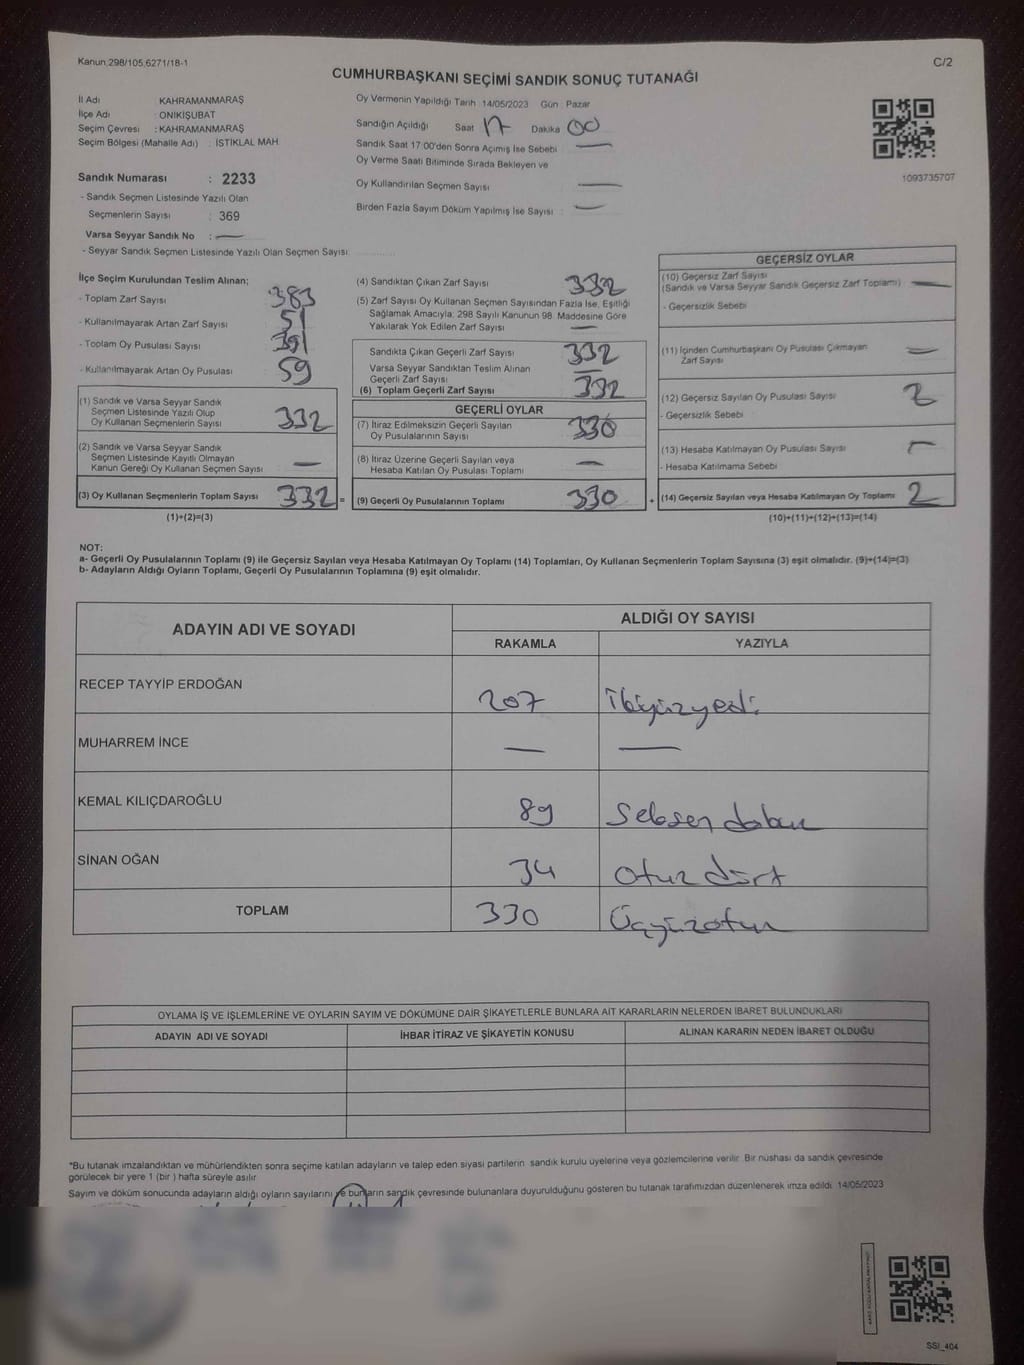 Kanun;298/105;6271/18-1
C/2
CUMHURBAŞKANI SEÇİMİ SANDIK SONUÇ TUTANAĞI
İl Adı : KAHRAMANMARAŞ
İlçe Adı : ONİKİŞUBAT
Seçim Çevresi : KAHRAMANMARAŞ
Seçim Bölgesi (Mahalle Adı) : İSTİKLAL MAH
Oy Vermenin Yapıldığı Tarih 14/05/2023 Gün : Pazar
Sandığın Açıldığı Saat 17 Dakika 00
Sandık Saat 17:00'den Sonra Açımış İse Sebebi —
Oy Verme Saati Bitiminde Sırada Bekleyen ve
Oy Kullandırılan Seçmen Sayısı —
Birden Fazla Sayım Döküm Yapılmış İse Sayısı : —
1093735707
Sandık Numarası : 2233
- Sandık Seçmen Listesinde Yazılı Olan
Seçmenlerin Sayısı : 369
Varsa Seyyar Sandık No : —
- Seyyar Sandık Seçmen Listesinde Yazılı Olan Seçmen Sayısı
İlçe Seçim Kurulundan Teslim Alınan;
- Toplam Zarf Sayısı 383
- Kullanılmayarak Artan Zarf Sayısı 51
- Toplam Oy Pusulası Sayısı 391
- Kullanılmayarak Artan Oy Pusulası 59
(1) Sandık ve Varsa Seyyar Sandık
Seçmen Listesinde Yazılı Olup
Oy Kullanan Seçmenlerin Sayısı 332
(2) Sandık ve Varsa Seyyar Sandık
Seçmen Listesinde Kayıtlı Olmayan
Kanun Gereği Oy Kullanan Seçmen Sayısı —
(3) Oy Kullanan Seçmenlerin Toplam Sayısı 332 =
(1)+(2)=(3)
(4) Sandıktan Çıkan Zarf Sayısı 332
(5) Zarf Sayısı Oy Kullanan Seçmen Sayısından Fazla İse, Eşitliği
Sağlamak Amacıyla; 298 Sayılı Kanunun 98. Maddesine Göre
Yakılarak Yok Edilen Zarf Sayısı —
Sandıkta Çıkan Geçerli Zarf Sayısı 332
Varsa Seyyar Sandıktan Teslim Alınan
Geçerli Zarf Sayısı —
(6) Toplam Geçerli Zarf Sayısı 332
GEÇERLİ OYLAR
(7) İtiraz Edilmeksizin Geçerli Sayılan
Oy Pusulalarının Sayısı 330
(8) İtiraz Üzerine Geçerli Sayılan veya
Hesaba Katılan Oy Pusulası Toplamı —
(9) Geçerli Oy Pusulalarının Toplamı 330 +
GEÇERSİZ OYLAR
(10) Geçersiz Zarf Sayısı
(Sandık ve Varsa Seyyar Sandık Geçersiz Zarf Toplamı) —
- Geçersizlik Sebebi
(11) İçinden Cumhurbaşkanı Oy Pusulası Çıkmayan
Zarf Sayısı —
(12) Geçersiz Sayılan Oy Pusulası Sayısı 2
- Geçersizlik Sebebi
(13) Hesaba Katılmayan Oy Pusulası Sayısı —
- Hesaba Katılmama Sebebi
(14) Geçersiz Sayılan veya Hesaba Katılmayan Oy Toplamı 2
(10)+(11)+(12)+(13)=(14)
NOT:
a- Geçerli Oy Pusulalarının Toplamı (9) ile Geçersiz Sayılan veya Hesaba Katılmayan Oy Toplamı (14) Toplamları, Oy Kullanan Seçmenlerin Toplam Sayısına (3) eşit olmalıdır. (9)+(14)=(3)
b- Adayların Aldığı Oyların Toplamı, Geçerli Oy Pusulalarının Toplamına (9) eşit olmalıdır.
ADAYIN ADI VE SOYADI
ALDIĞI OY SAYISI
RAKAMLA YAZIYLA
RECEP TAYYİP ERDOĞAN 207 İkiyüzyedi
MUHARREM İNCE — —
KEMAL KILIÇDAROĞLU 89 Seksen dokuz
SİNAN OĞAN 34 otuz dört
TOPLAM 330 Üçyüzotuz
OYLAMA İŞ VE İŞLEMLERİNE VE OYLARIN SAYIM VE DÖKÜMÜNE DAİR ŞİKAYETLERLE BUNLARA AİT KARARLARIN NELERDEN İBARET BULUNDUKLARI
ADAYIN ADI VE SOYADI İHBAR İTİRAZ VE ŞİKAYETİN KONUSU ALINAN KARARIN NEDEN İBARET OLDUĞU
*Bu tutanak imzalandıktan ve mühürlendikten sonra seçime katılan adayların ve talep eden siyasi partilerin sandık kurulu üyelerine veya gözlemcilerine verilir. Bir nüshası da sandık çevresinde
görülecek bir yere 1 (bir ) hafta süreyle asılır.
Sayım ve döküm sonucunda adayların aldığı oyların sayılarını ve bunların sandık çevresinde bulunanlara duyurulduğunu gösteren bu tutanak tarafımızdan düzenlenerek imza edildi. 14/05/2023
SSI_404